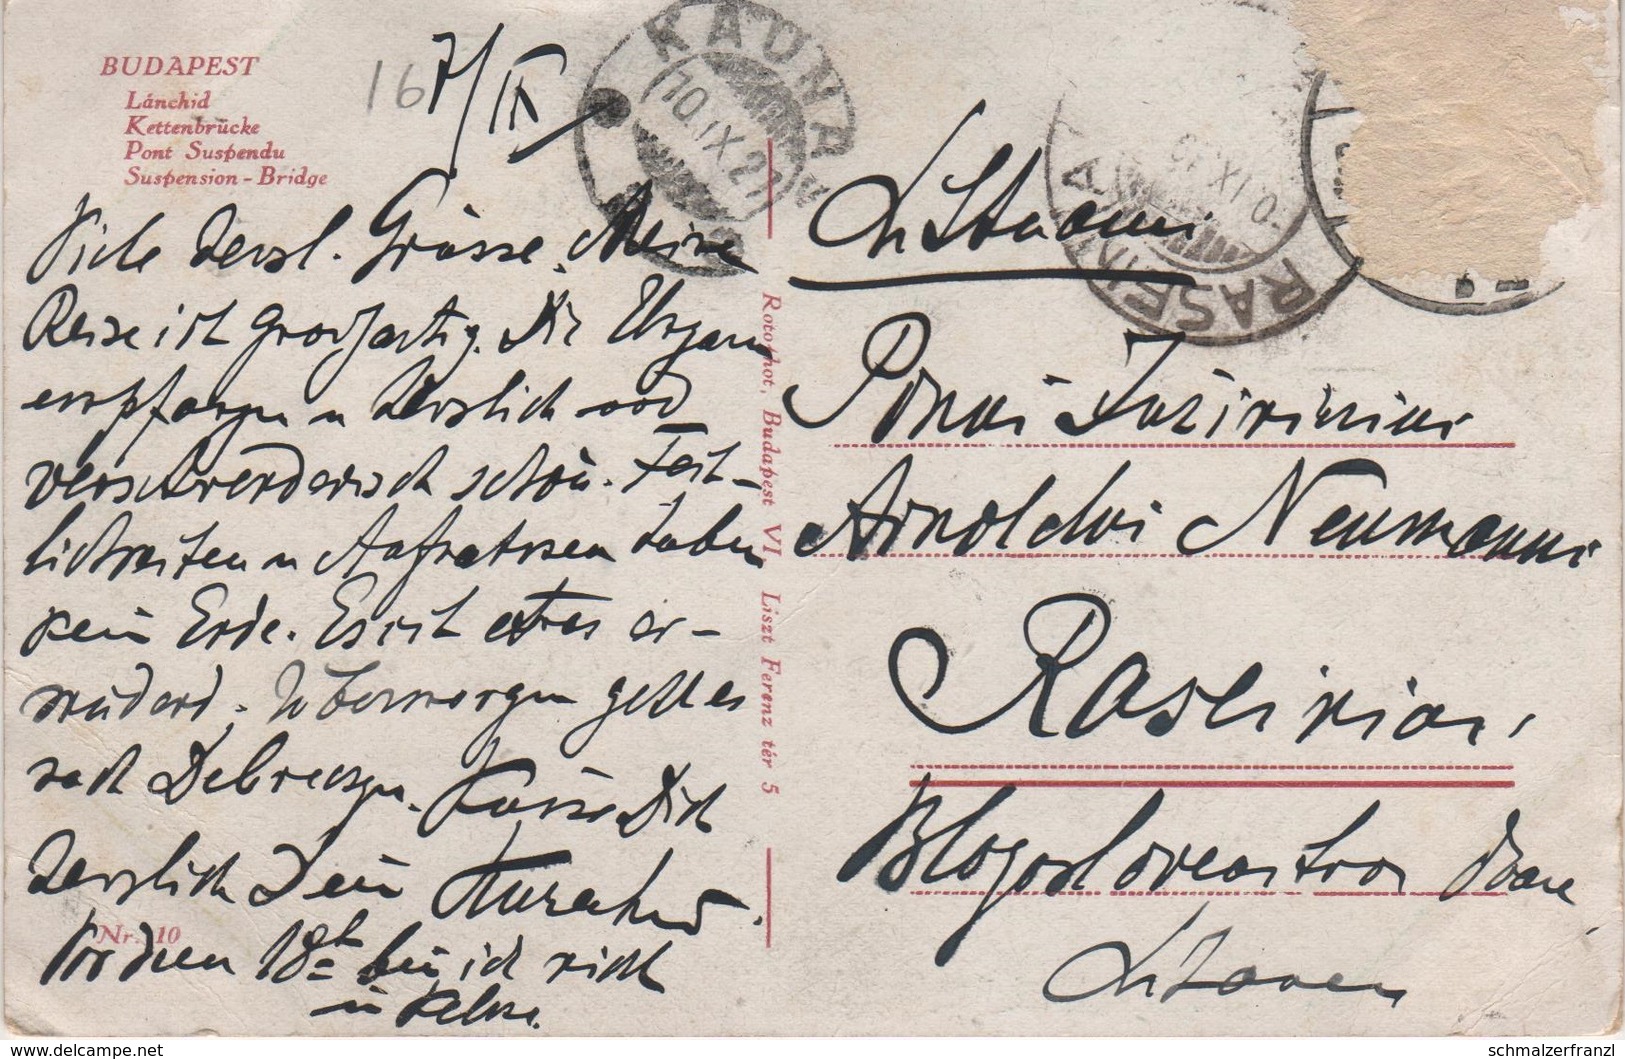 BUDAPEST
Lánchid
Kettenbrücke
Pont Suspendu
Suspension - Bridge
16 7/IX
KAUNA
10.IX.27
RASEINIAI
Viele herzl. Grüsse. Meine
Reise ist grossartig. Die Ungarn
empfangen u herzlich und
verschwenderisch schön. Fest-
lichkeiten u Aufnahmen haben
kein Ende. Es ist etwas er-
müdend. Übermorgen geht es
nach Debreczen. Küsse Dich
herzlich Dein
Vor dem 18t bin ich nicht
in
Nr. 10
Rotophot, Budapest VI. Liszt Ferenz tér 5
Ponui Inžinieriui
Arnoldui Neumannui
Raseiniai,
Litauen
schmalzerfranzl
©delcampe.net